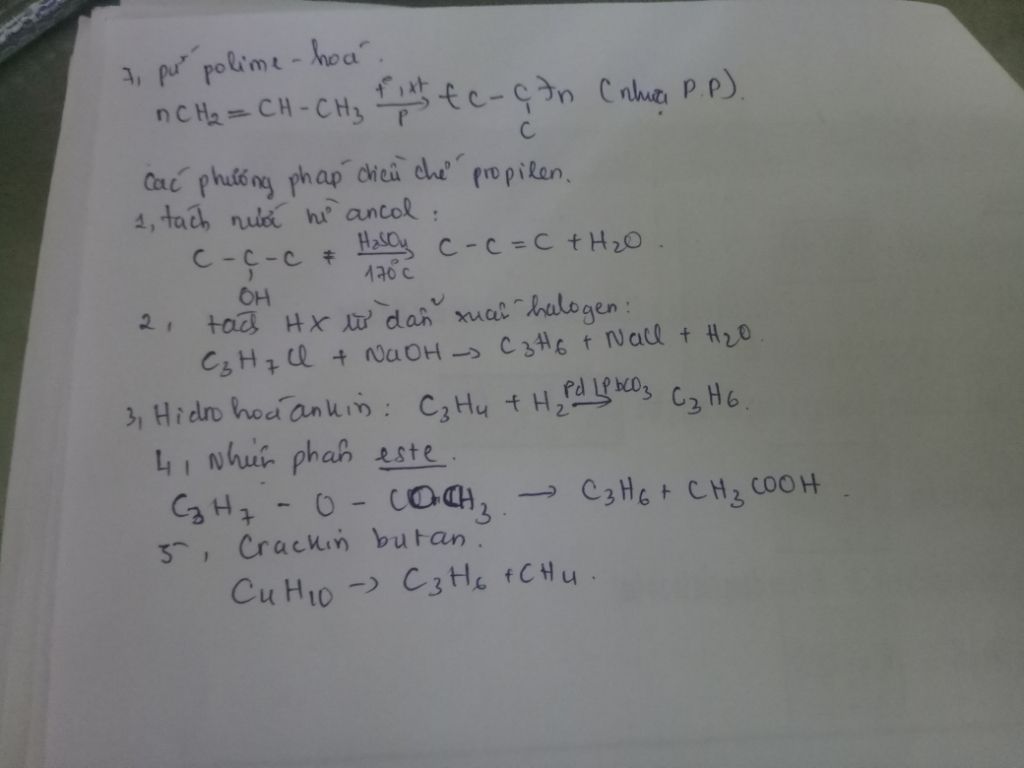 7, pư polime - hoá.
nCH₂ = CH - CH₃ t°, xt → p ( C - C )n (nhựa P.P).
C
Các phương pháp điều chế propilen.
1, tách nước từ ancol :
C - C - C H₂SO₄ → 170°C C - C = C + H₂O.
OH
2, tách HX từ dẫn xuất halogen:
C₃H₇Cl + NaOH → C₃H₆ + NaCl + H₂O.
3, Hidro hoá ankin : C₃H₄ + H₂ Pd/PbCO₃ → C₃H₆.
4, Nhiệt phân este.
C₃H₇ - O - COCH₃ → C₃H₆ + CH₃COOH.
5, Crackin butan.
C₄H₁₀ → C₃H₆ + CH₄.